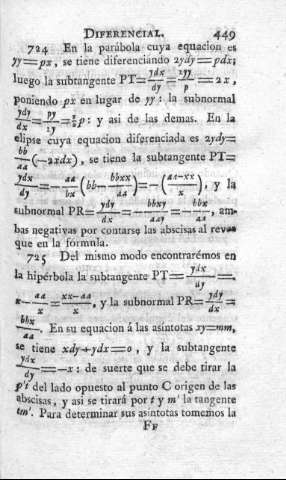 DIFERENCIAL. 449
724 En la parábola cuya equacion es
yy=px, se tiene diferenciando 2ydy=pdx;
luego la subtangente PT=ydx/dy=2yy/p=2x,
poniendo px en lugar de yy: la subnormal
ydy/dx=py/2y=½p: y asi de las demas. En la
elipse cuya equacion diferenciada es 2ydy=
bb/aa(-2xdx), se tiene la subtangente PT=
ydx/dy=-aa/bx(bb-bbxx/aa)=-(aa-xx/x), y la
subnormal PR=ydy/dx=-bbxy/aay=-bbx/aa, am-
bas negativas por contarse las abscisas al reves
que en la fórmula.
725 Del mismo modo encontrarémos en
la hipérbola la subtangente PT=ydx/dy=
x-aa/x=xx-aa/x, y la subnormal PR=ydy/dx=
bbx/aa. En su equacion á las asíntotas xy=mm,
se tiene xdy+ydx=0, y la subtangente
ydx/dy=-x: de suerte que se debe tirar la
p't del lado opuesto al punto C origen de las
abscisas, y asi se tirará por t y m' la tangente
tm'. Para determinar sus asíntotas tomemos la
FF